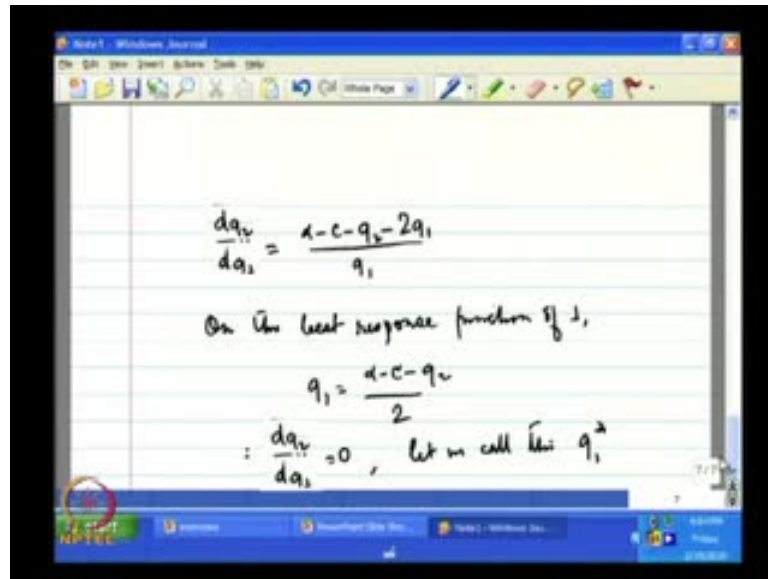 Note1 - Windows Journal
File Edit View Insert Actions Tools Help
Whole Page
dq₂/dq₁ = (α-c-q₂-2q₁)/q₁
On the best response function of 1,
q₁ = (α-c-q₂)/2
: dq₂/dq₁ = 0, let us call this q₁*
7/7
7
NPTEL
start
Note1 - Windows Jou...
Friday